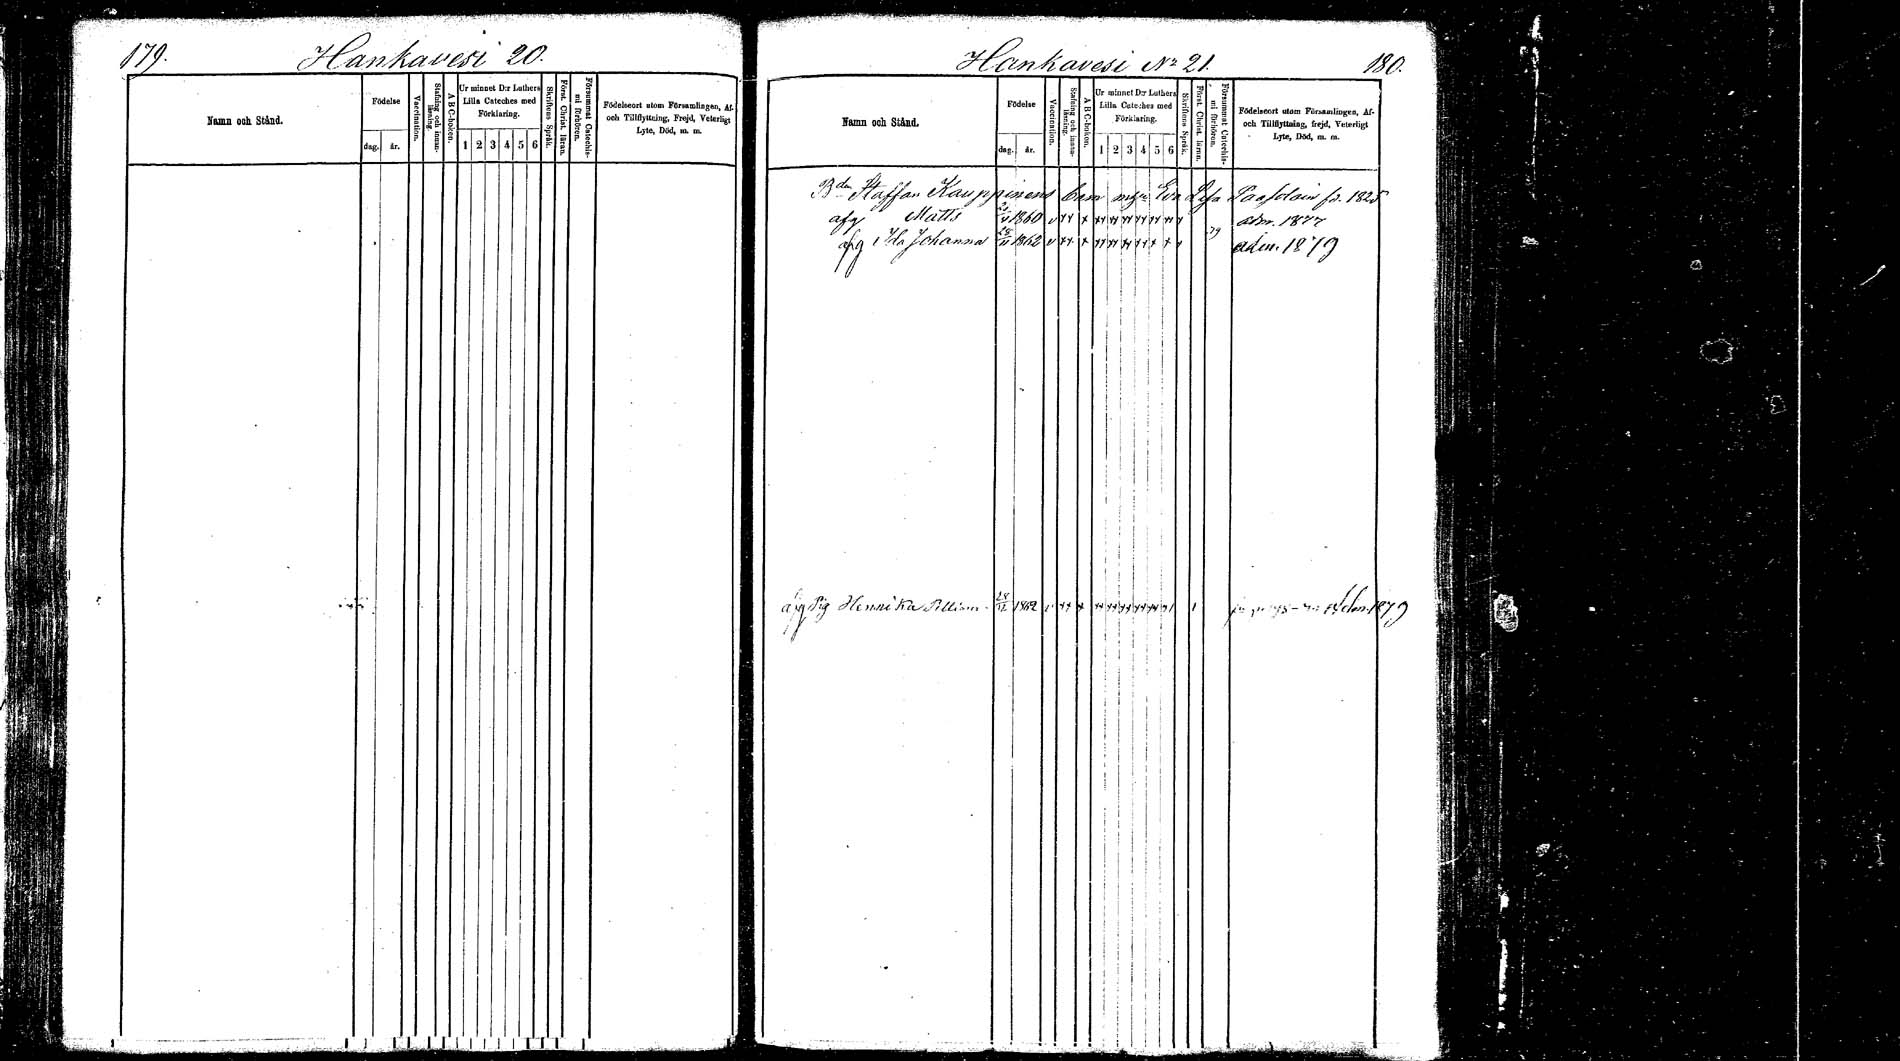 179.
Hankavesi 20.
Namn och Stånd.
Födelse
dag.
år.
Vaccination.
Stafning och innan-
läsning.
A B C-boken.
Ur minnet D:r Luthers
Lilla Cateches med
Förklaring.
1 2 3 4 5 6
Skriftens Språk.
Först. Christ. läran.
Försummat Catechis-
mi förhören.
Födelseort utom Församlingen, Af-
och Tillflyttning, Frejd, Veterligt
Lyte, Död, m. m.
Hankavesi No 21.
180.
Namn och Stånd.
Födelse
dag.
år.
Vaccination.
Stafning och innan-
läsning.
A B C-boken.
Ur minnet D:r Luthers
Lilla Cateches med
Förklaring.
1 2 3 4 5 6
Skriftens Språk.
Först. Christ. läran.
Försummat Catechis-
mi förhören.
Födelseort utom Församlingen, Af-
och Tillflyttning, frejd, Veterligt
Lyte, Död, m. m.
Bdn Staffan Kauppinens barn med Eva Lisa fd. 1825
afg Matts 1860 adm. 1877
afg Ida Johanna 28 1862 79 adm. 1879
afg Pig Hennika 28 1862 adm. 1879